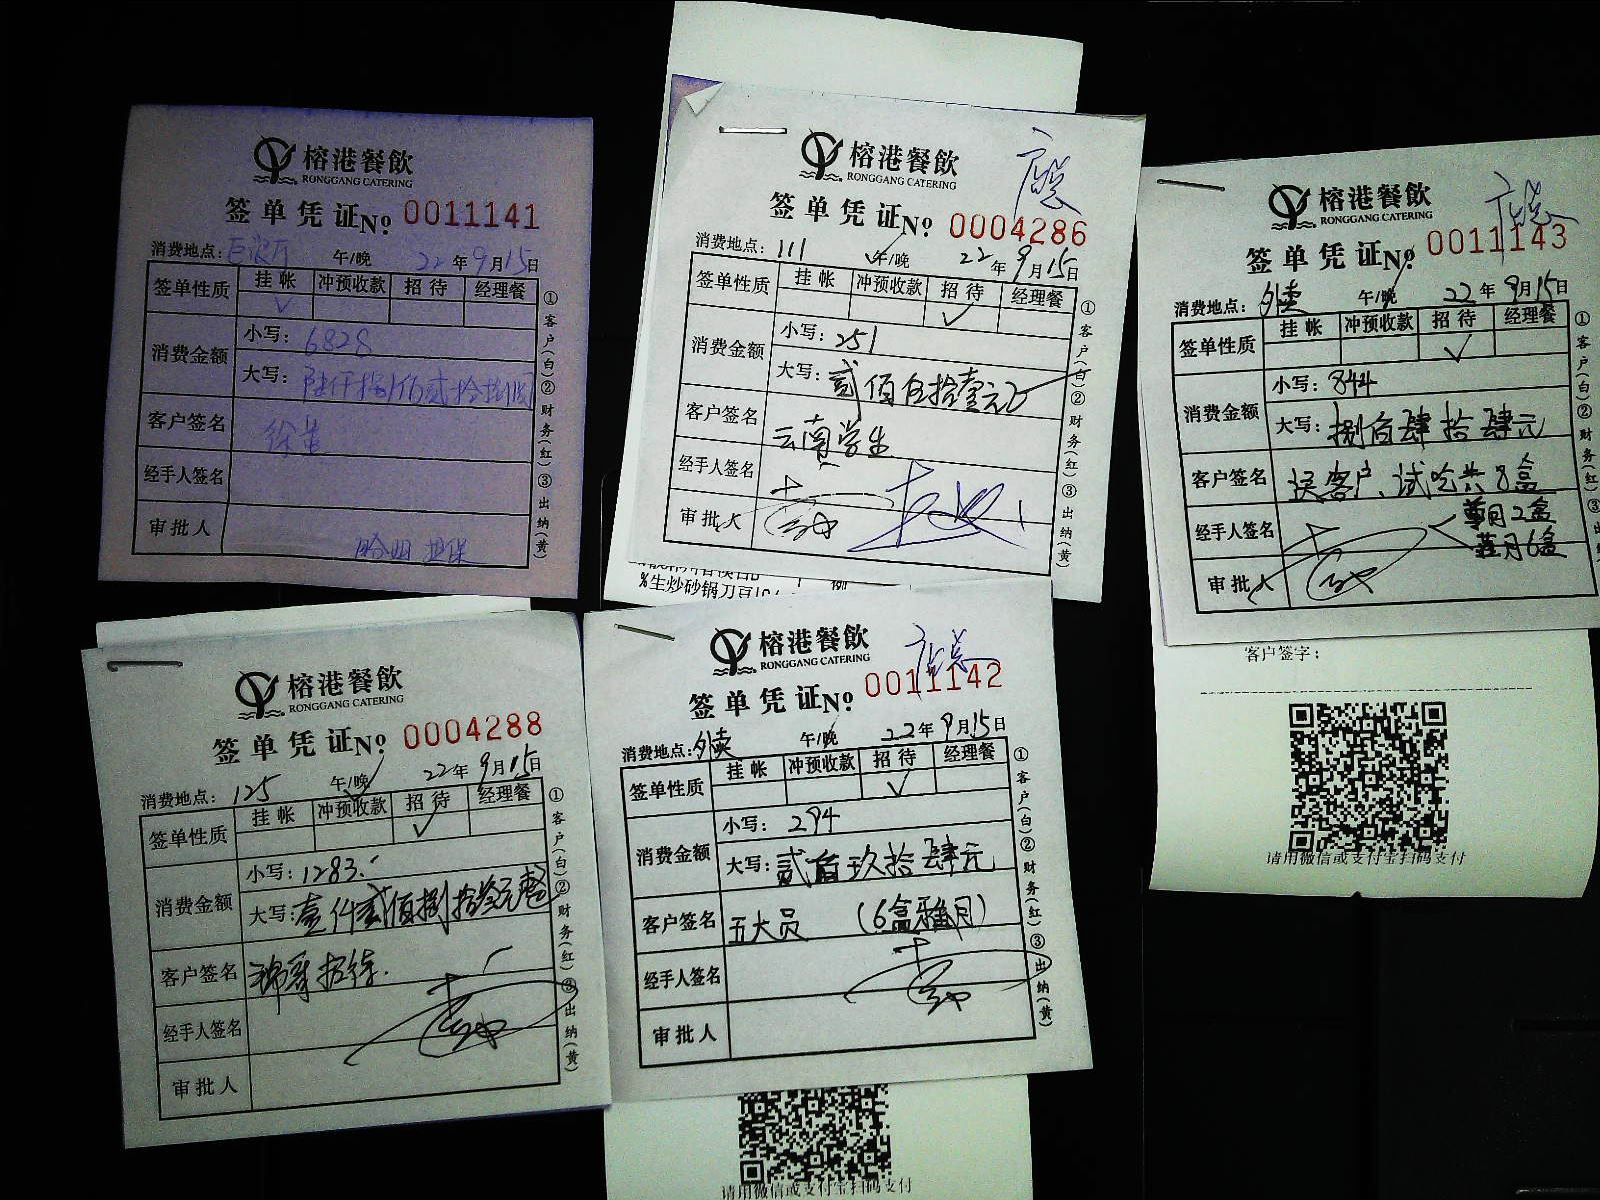 榕港餐飲
RONGGANG CATERING
签单凭证 № 0011141
消费地点: 午/晚 22年9月15日
签单性质 挂帐 冲预收款 招待 经理餐
✓
消费金额 小写: 6828
大写: 陆仟捌佰贰拾捌
客户签名
经手人签名
审批人 担保
①客户(白)②财务(红)③出纳(黄)
榕港餐飲
RONGGANG CATERING
签单凭证 № 0004286
消费地点: 111 午/晚 22年9月15日
签单性质 挂帐 冲预收款 招待 经理餐
✓
消费金额 小写: 251
大写: 贰佰伍拾壹元
客户签名 云南学生
经手人签名
审批人
①客户(白)②财务(红)③出纳(黄)
%生炒砂锅刀豆
榕港餐飲
RONGGANG CATERING
签单凭证 № 0011143
消费地点: 外卖 午/晚 22年9月15日
签单性质 挂帐 冲预收款 招待 经理餐
✓
消费金额 小写: 844
大写: 捌佰肆拾肆元
客户签名 送客户、试吃共8盒
经手人签名 月2盒
月6盒
审批人
①客户(白)②财务(红)③
客户签字:
请用微信或支付宝扫码支付
榕港餐飲
RONGGANG CATERING
签单凭证 № 0004288
消费地点: 125 午/晚 22年9月15日
签单性质 挂帐 冲预收款 招待 经理餐
✓
消费金额 小写: 1283.
大写: 壹仟贰佰捌拾叁元整
客户签名 锦哥招待.
经手人签名
审批人
①客户(白)②财务(红)③出纳(黄)
榕港餐飲
RONGGANG CATERING
签单凭证 № 0011142
消费地点: 外卖 午/晚 22年9月15日
签单性质 挂帐 冲预收款 招待 经理餐
✓
消费金额 小写: 294
大写: 贰佰玖拾肆元
客户签名 五大员 (6盒雅月)
经手人签名
审批人
①客户(白)②财务(红)③出纳(黄)
请用微信或支付宝扫码支付